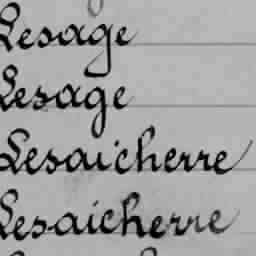 Lesage
Lesage
Lesaicherre
Lesaicherre